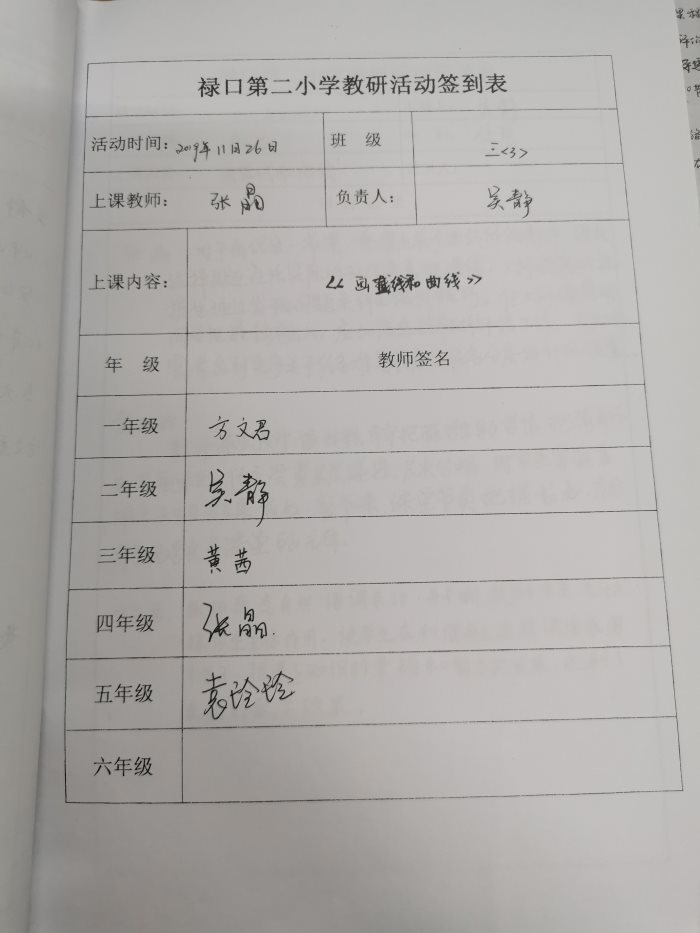 禄口第二小学教研活动签到表
活动时间：2019年11月26日 班 级 三<3>
上课教师： 张晶 负责人： 吴静
上课内容： 《画直线和曲线》
年 级 教师签名
一年级 方文君
二年级 吴静
三年级 黄茜
四年级 张晶.
五年级 袁玲玲
六年级